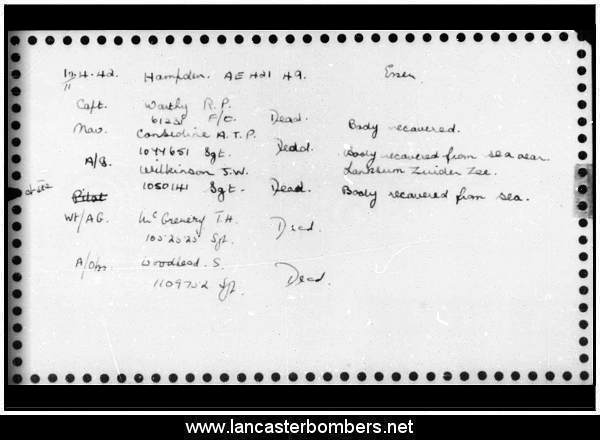 12.4.42. Hampden. AE 421 49. Essen
11
Capt. Worthy R.P.
F/O. Dead. Body recovered.
Nav. Considine A.T.P.
1044651 Sgt. Dead. Body recovered from sea near
A/G. Wilkinson J.W. Zuider Zee.
1050141 Sgt. Dead. Body recovered from sea.
Pilot
Wt/AG. McGrenery T.H.
Sgt. Dead.
A/Obs. Woodhead. S.
1109752 Sgt. Dead.
www.lancasterbombers.net